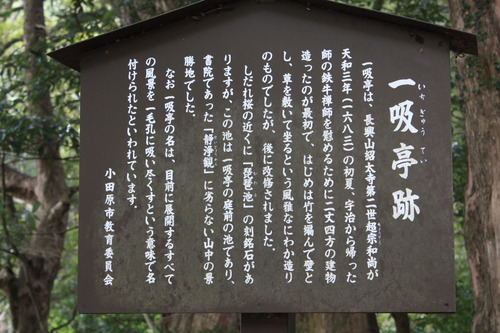 一吸亭跡
いっ きゅう てい
一吸亭は、長興山紹太寺第二世超宗和尚が
天和三年(一六八三)の初夏、宇治から帰った
師の鉄牛禅師を慰めるために二丈四方の建物
造ったのが最初で、はじめは竹を編んで壁と
し、草を敷いて坐るという風雅なにわか造り
のものでしたが、後に改修されました。
しだれ桜の近くに「琵琶池」の刻銘石があ
りますが、この池は一吸亭の庭前の池であり、
書院であった「静浄観」に劣らない山中の景
勝地でした。
なお一吸亭の名は、目前に展開するすべて
の風景を一毛孔に吸い尽くすという意味で名
付けられたといわれています。
小田原市教育委員会